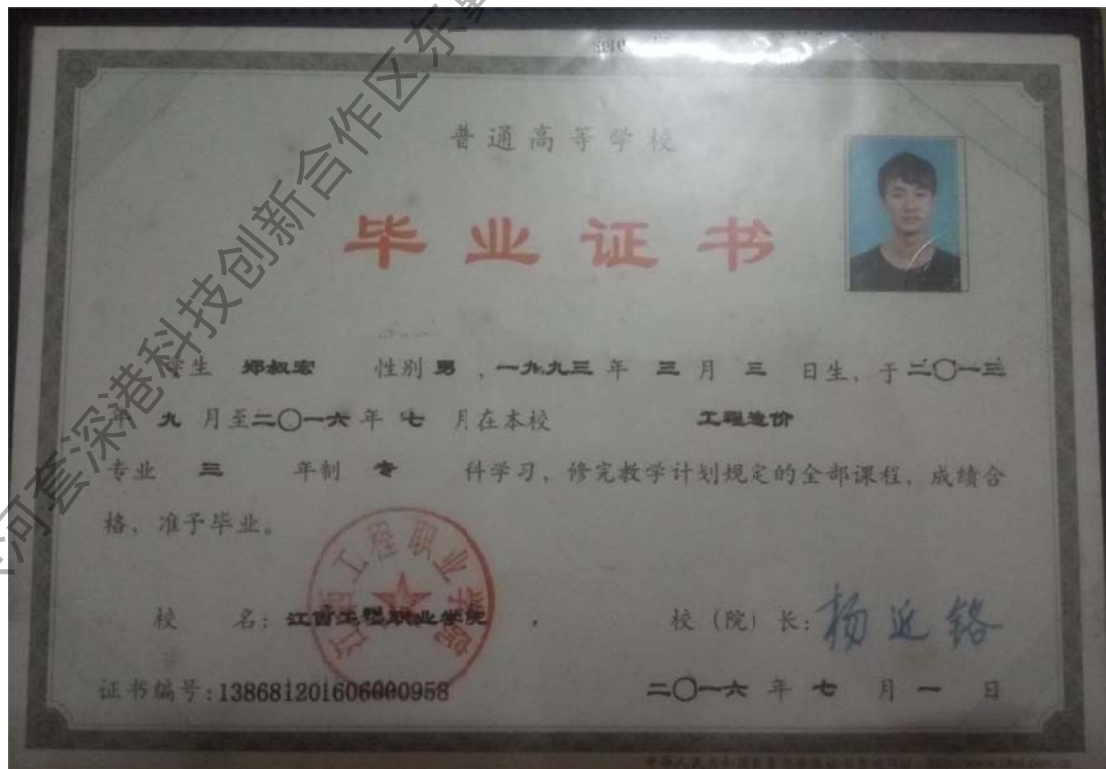 河套深港科技创新合作区东
普通高等学校
毕业证书
学生 郑叔宏 性别 男 ，一九九三 年 三 月 三 日生，于 二〇一三
年 九 月至 二〇一六 年 七 月在本校 工程造价
专业 三 年制 专 科学习，修完教学计划规定的全部课程，成绩合
格，准予毕业。
江西工程职业学院
校 名：江西工程职业学院
校（院）长：杨近铭
证书编号:138681201606000958
二〇一六 年 七 月 一 日